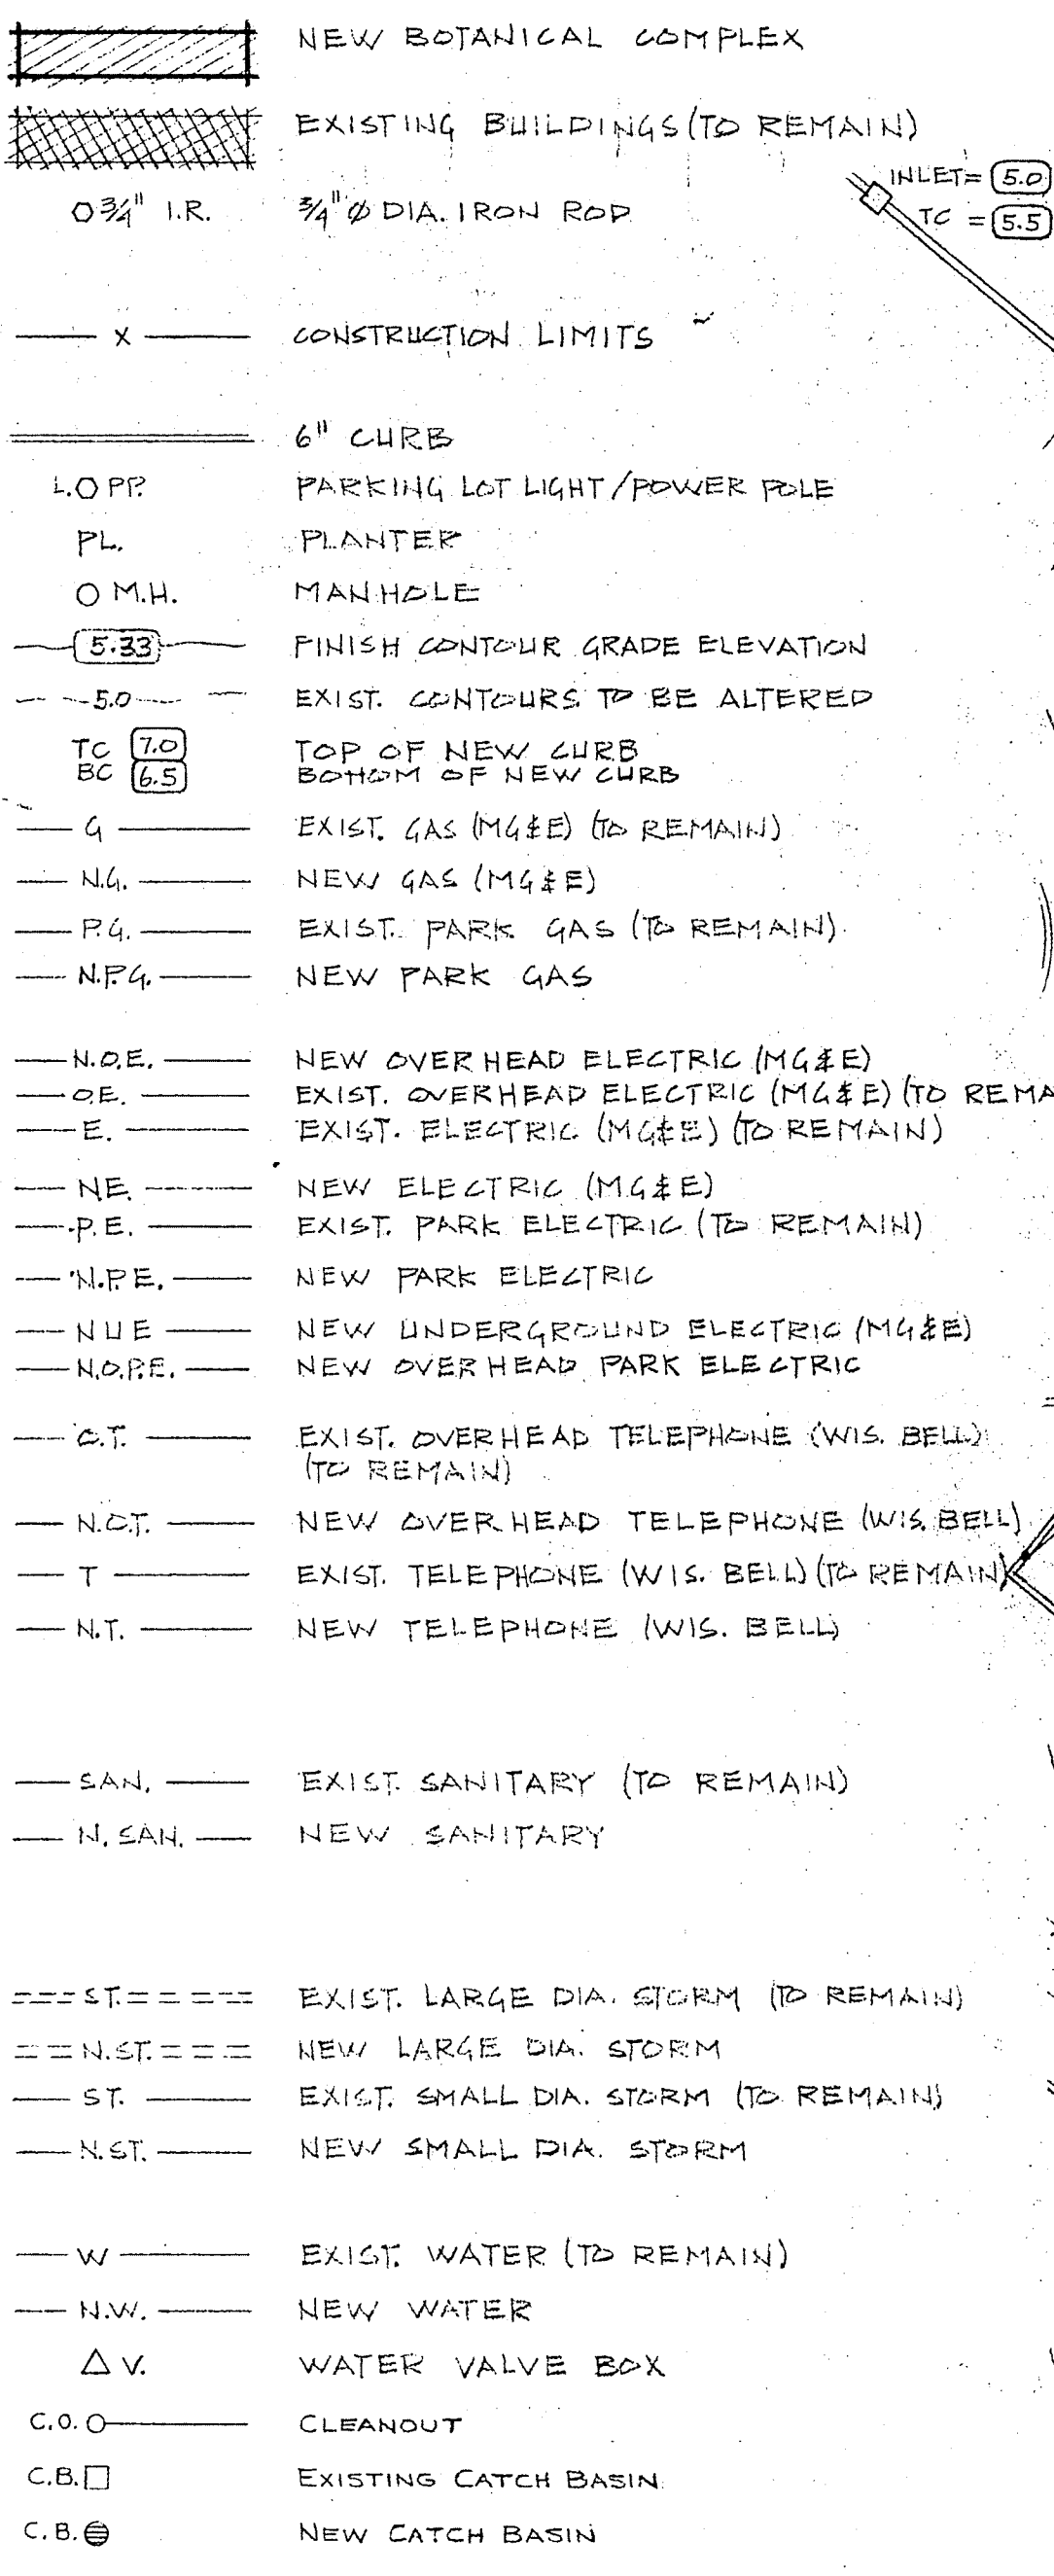 NEW BOTANICAL COMPLEX
EXISTING BUILDINGS (TO REMAIN)
INLET= 5.0
TC = 5.5
O 3/4" I.R. 3/4" Ø DIA. IRON ROD
X CONSTRUCTION LIMITS
6" CURB
L.O PP. PARKING LOT LIGHT/POWER POLE
PL. PLANTER
O M.H. MANHOLE
5.33 FINISH CONTOUR GRADE ELEVATION
5.0 EXIST. CONTOURS TO BE ALTERED
TC 7.0 TOP OF NEW CURB
BC 6.5 BOTTOM OF NEW CURB
G EXIST. GAS (MG&E) (TO REMAIN)
N.G. NEW GAS (MG&E)
P.G. EXIST. PARK GAS (TO REMAIN)
N.P.G. NEW PARK GAS
N.O.E. NEW OVERHEAD ELECTRIC (MG&E)
O.E. EXIST. OVERHEAD ELECTRIC (MG&E) (TO REMA
E. EXIST. ELECTRIC (MG&E) (TO REMAIN)
N.E. NEW ELECTRIC (MG&E)
P.E. EXIST. PARK ELECTRIC (TO REMAIN)
N.P.E. NEW PARK ELECTRIC
NUE NEW UNDERGROUND ELECTRIC (MG&E)
N.O.P.E. NEW OVERHEAD PARK ELECTRIC
O.T. EXIST. OVERHEAD TELEPHONE (WIS. BELL)
(TO REMAIN)
N.O.T. NEW OVERHEAD TELEPHONE (WIS. BELL)
T EXIST. TELEPHONE (WIS. BELL) (TO REMAIN)
N.T. NEW TELEPHONE (WIS. BELL)
SAN. EXIST. SANITARY (TO REMAIN)
N. SAN. NEW SANITARY
ST. EXIST. LARGE DIA. STORM (TO REMAIN)
N.ST. NEW LARGE DIA. STORM
ST. EXIST. SMALL DIA. STORM (TO REMAIN)
N.ST. NEW SMALL DIA. STORM
W EXIST. WATER (TO REMAIN)
N.W. NEW WATER
△ V. WATER VALVE BOX
C.O. CLEANOUT
C.B. EXISTING CATCH BASIN
C.B. NEW CATCH BASIN